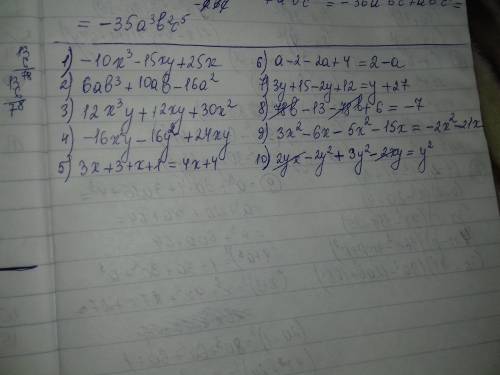 = -35a³b²c⁵
1) -10x³-15xy+25x
2) 6ab³+10ab-16a²
3) 12x³y+12xy+30x²
4) -16xy-16y²+24xy
5) 3x+3+x+1=4x+4
6) a-2-2a+4=2-a
7) 3y+15-2y+12=y+27
8) -13 +6=-7
9) 3x²-6x-5x²-15x=-2x²-21x
10) 2yx-2y²+3y²-2xy=y²
13
6
78
13
6
78